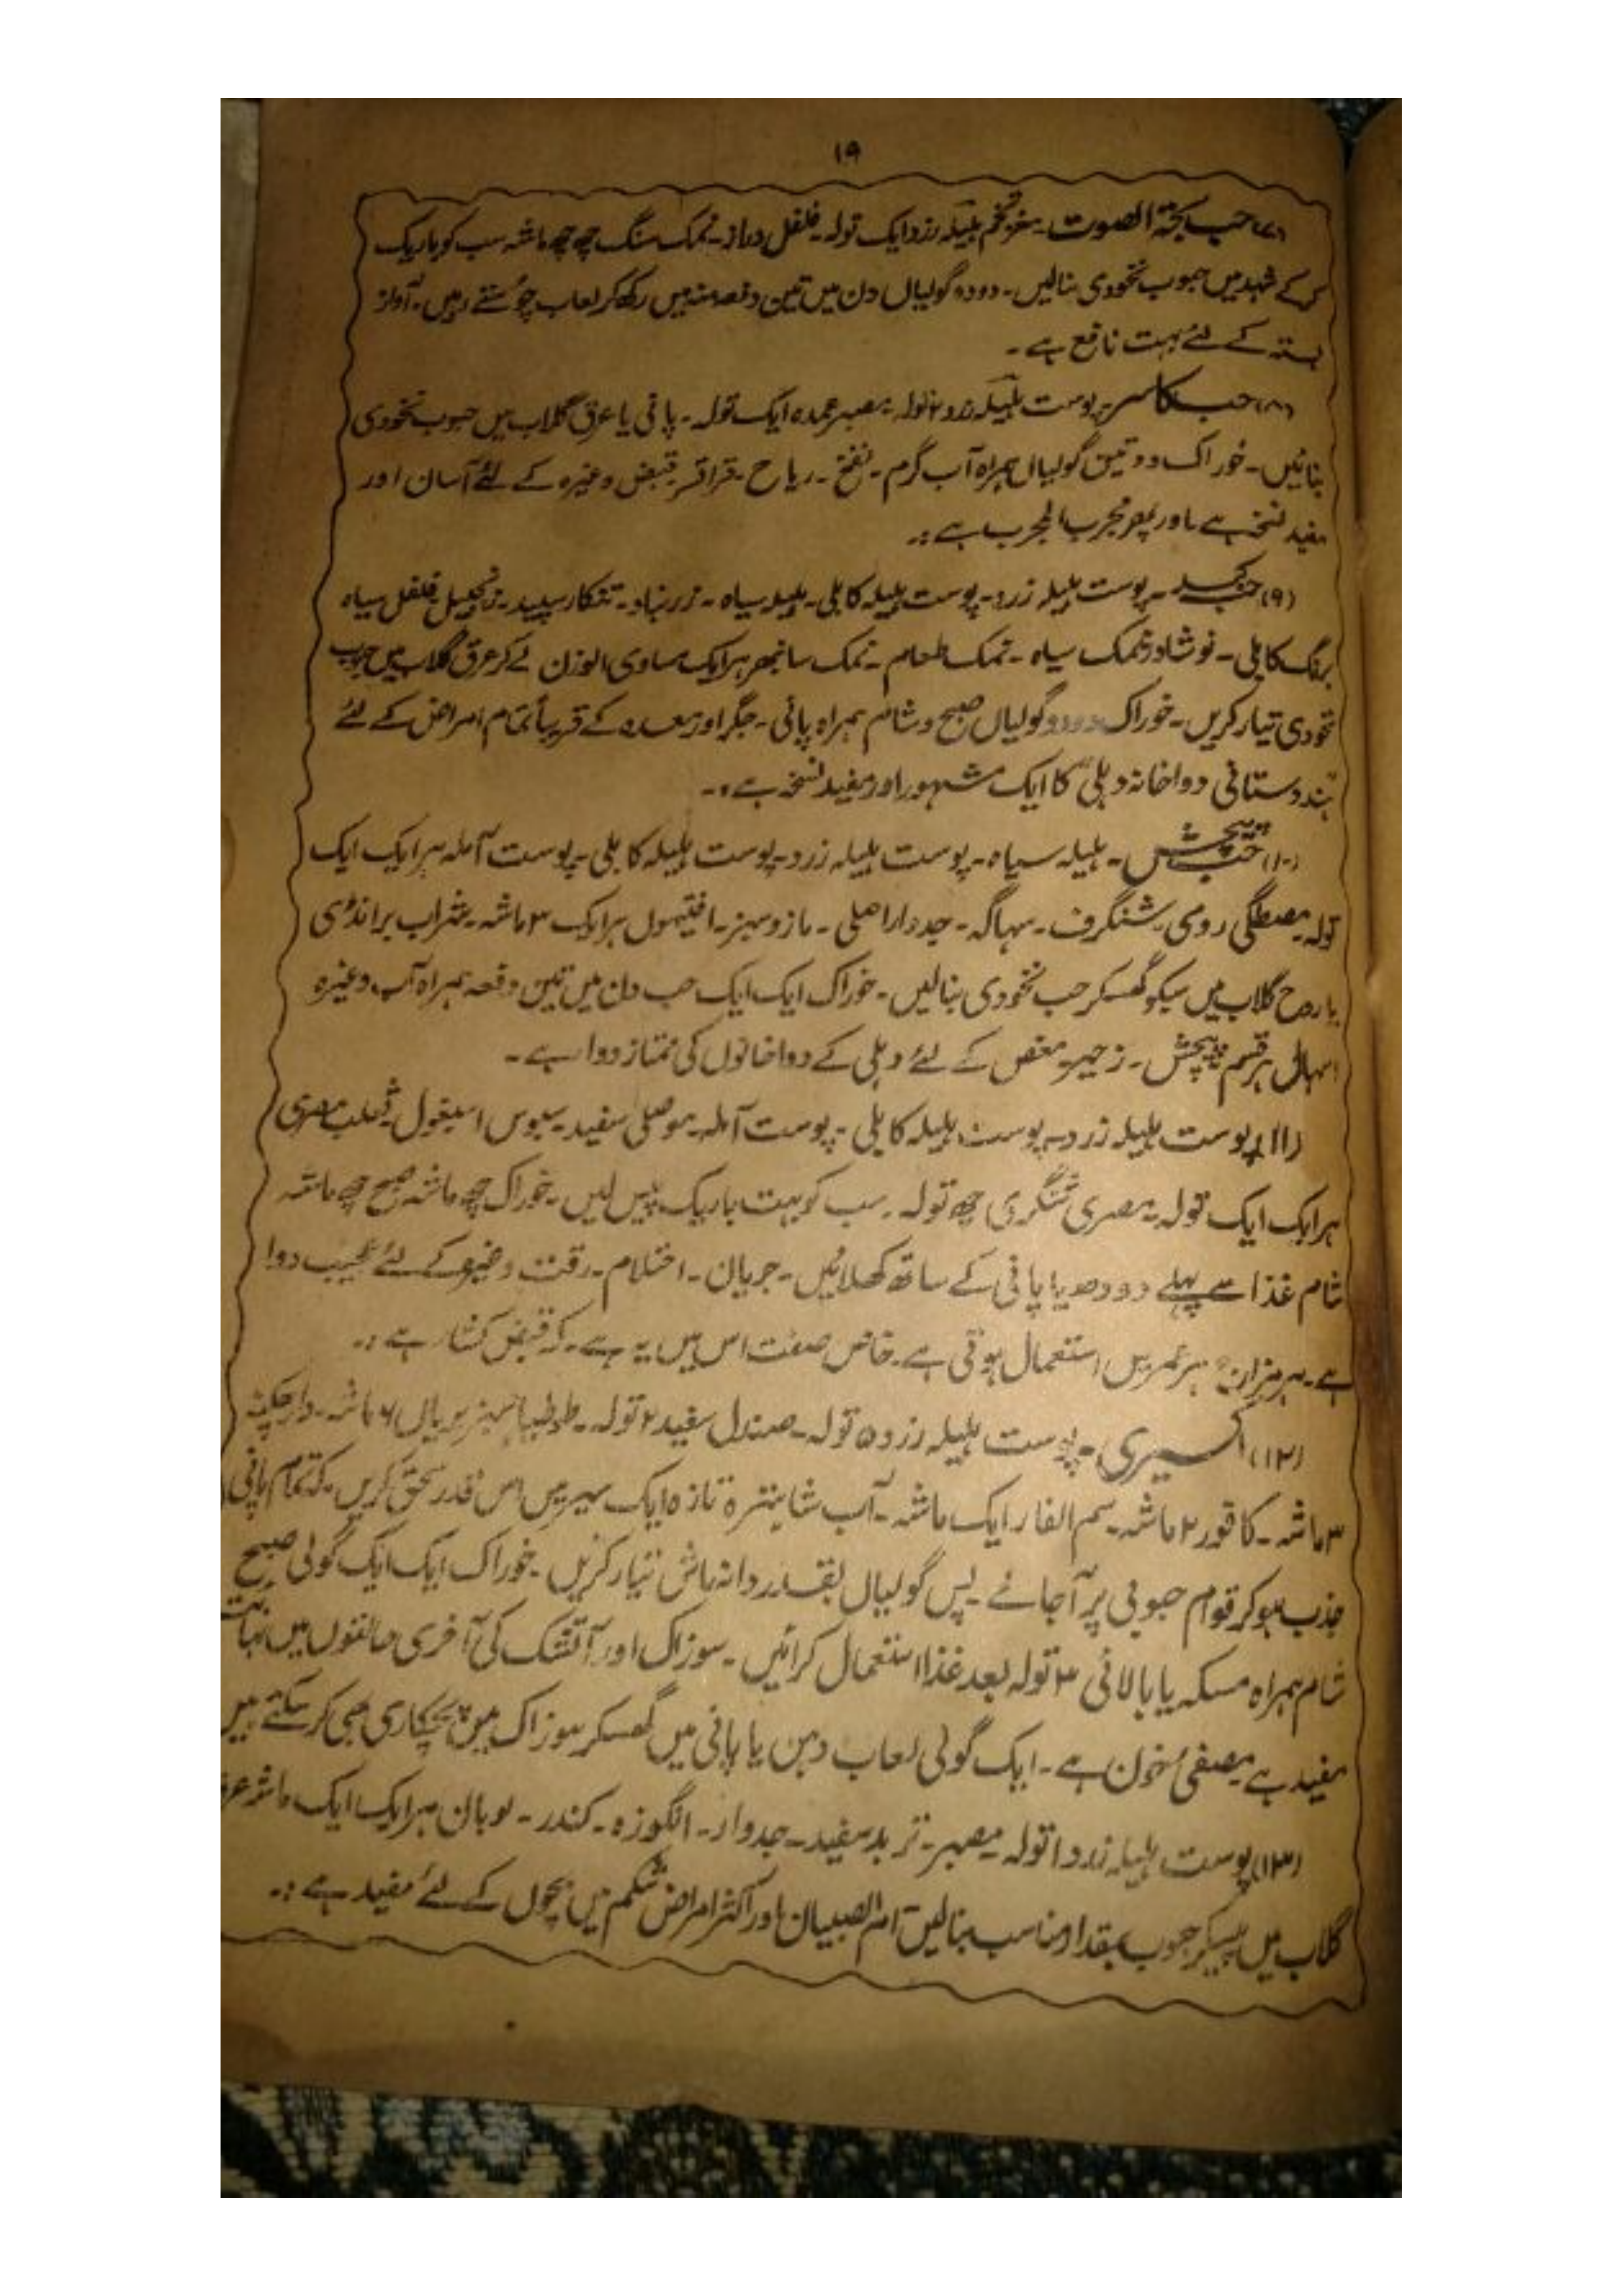 ۱۹
(۷) حب بحۃ الصوت۔ مغز تخم ہلیلہ زرد ایک تولہ۔ فلفل دراز۔ نمک سنگ چھ چھ ماشہ سب کو باریک
کر کے شہد میں حبوب نخودی بنالیں۔ دو دو گولیاں دن میں تین دفعہ منہ میں رکھ کر لعاب چوستے رہیں۔ آواز
بستہ کے لئے بہت نافع ہے۔
(۸) حب کاسر۔ پوست ہلیلہ زرد ۲ تولہ۔ مصبر عمدہ ایک تولہ۔ پانی یا عرق گلاب میں حبوب نخودی
بنائیں۔ خوراک دو تین گولیاں ہمراہ آب گرم۔ نفخ۔ ریاح۔ قراقر۔ قبض وغیرہ کے لئے آسان اور
مفید نسخہ ہے اور پھر مجرب المجرب ہے :۔
(۹) حب کبد۔ پوست ہلیلہ زرد۔ پوست ہلیلہ کابلی۔ ہلیلہ سیاہ۔ زرنباد۔ تنکار سپید۔ زنجبیل۔ فلفل سیاہ
برنگ کابلی۔ نوشادر۔ نمک سیاہ۔ نمک طعام۔ نمک سانبھر ہر ایک مساوی الوزن لے کر عرق گلاب میں حبوب
نخودی تیار کریں۔ خوراک دو دو گولیاں صبح و شام ہمراہ پانی۔ جگر اور معدہ کے قریباً تمام امراض کے لئے
ہندوستانی دواخانہ دہلی کا ایک مشہور اور مفید نسخہ ہے :۔
(۱۰) حب پیچش۔ ہلیلہ سیاہ۔ پوست ہلیلہ زرد۔ پوست ہلیلہ کابلی۔ پوست آملہ ہر ایک ایک
تولہ۔ مصطگی رومی۔ شنگرف۔ سہاگہ۔ جدوار اصلی۔ مازو سبز۔ افتیمول ہر ایک ۳ ماشہ۔ شراب برانڈی
یا روح گلاب میں سبکو گھسکر حب نخودی بنالیں۔ خوراک ایک ایک حب دن میں تین دفعہ ہمراہ آب وغیرہ
اسہال ہر قسم پیچش۔ زحیر۔ مغص کے لئے دہلی کے دواخانوں کی ممتاز دوا ہے۔
(۱۱) پوست ہلیلہ زرد۔ پوست ہلیلہ کابلی۔ پوست آملہ۔ موصلی سفید۔ سبوس اسبغول۔ ثعلب مصری
ہر ایک ایک تولہ۔ مصری شنگری چھ تولہ۔ سب کو بہت باریک پیس لیں۔ خوراک چھ ماشہ صبح چھ ماشہ
شام غذا سے پہلے دودھ یا پانی کے ساتھ کھلائیں۔ جریان۔ احتلام۔ رقت وغیرہ کے لئے عجیب دوا
ہے۔ ہر مزاج ہر عمر میں استعمال ہوتی ہے۔ خاص صفت اس میں یہ ہے۔ کہ قبض کشا ہے :۔
(۱۲) اکسیری۔ پوست ہلیلہ زرد ۵ تولہ۔ صندل سفید ۲ تولہ۔ طوطیا سبز بریاں ۶ ماشہ۔ دارچکنہ
۳ ماشہ۔ کافور ۲ ماشہ۔ سم الفار ایک ماشہ۔ آب شاہترہ تازہ ایک سیر میں اس قدر سحق کریں۔ کہ تمام پانی
جذب ہو کر قوام حبوبی پر آجائے۔ پس گولیاں بقدر دانہ ماش تیار کریں۔ خوراک ایک ایک گولی صبح
شام ہمراہ مسکہ یا بالائی ۳ تولہ بعد غذا استعمال کرائیں۔ سوزاک اور آتشک کی آخری حالتوں میں نہایت
مفید ہے مصفیٰ خون ہے۔ ایک گولی لعاب دہن یا پانی میں گھسکر سوزاک میں پچکاری بھی کر سکتے ہیں
(۱۳) پوست ہلیلہ زرد ۱ تولہ۔ مصبر۔ تربد سفید۔ جدوار۔ انگوزہ۔ کندر۔ لوبان ہر ایک ایک ماشہ عرق
گلاب میں پیسکر حبوب بمقدار مناسب بنالیں۔ ام الصبیان اور اکثر امراض شکم میں بچوں کے لئے مفید ہے :۔